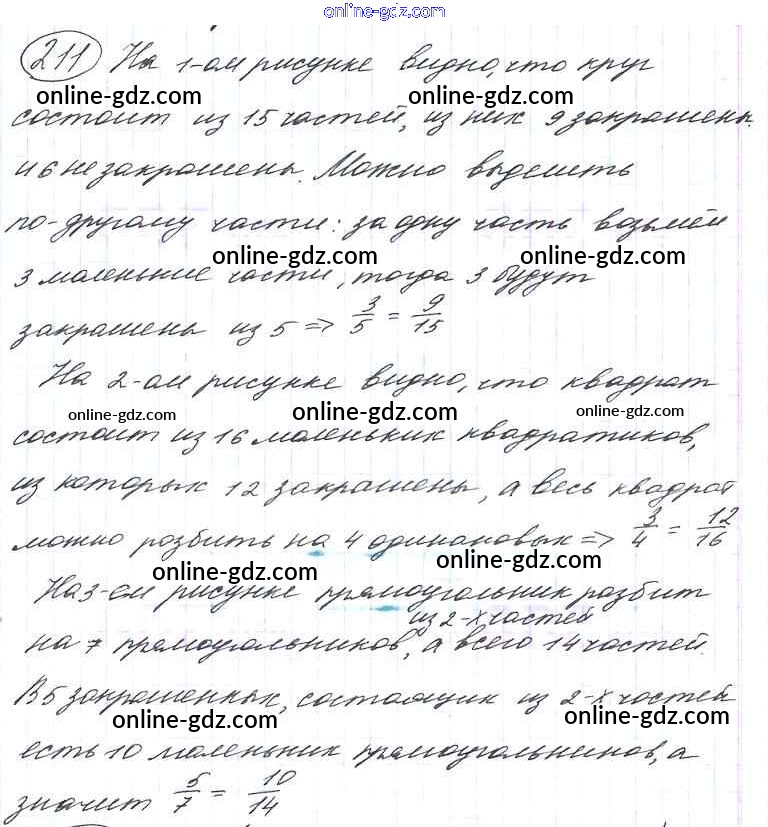 online-gdz.com
211 На 1-ом рисунке видно, что круг
online-gdz.com online-gdz.com
состоит из 15 частей, из них 9 закрашены
и 6 не закрашены. Можно выделить
по-другому части: за одну часть возьмём
online-gdz.com online-gdz.com
3 маленькие части, тогда 3 будут
закрашены из 5 => 3/5 = 9/15
На 2-ом рисунке видно, что квадрат
online-gdz.com online-gdz.com online-gdz.com
состоит из 16 маленьких квадратиков,
из которых 12 закрашены, а весь квадрат
можно разбить на 4 одинаковых => 3/4 = 12/16
online-gdz.com online-gdz.com
На 3-ем рисунке прямоугольник разбит
из 2-х частей
на 7 прямоугольников, а всего 14 частей.
В 5 закрашенных, состоящих из 2-х частей
online-gdz.com online-gdz.com
есть 10 маленьких прямоугольников, а
значит 5/7 = 10/14